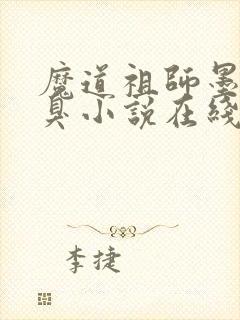 魔道祖師墨
臭小説在綫
李捷